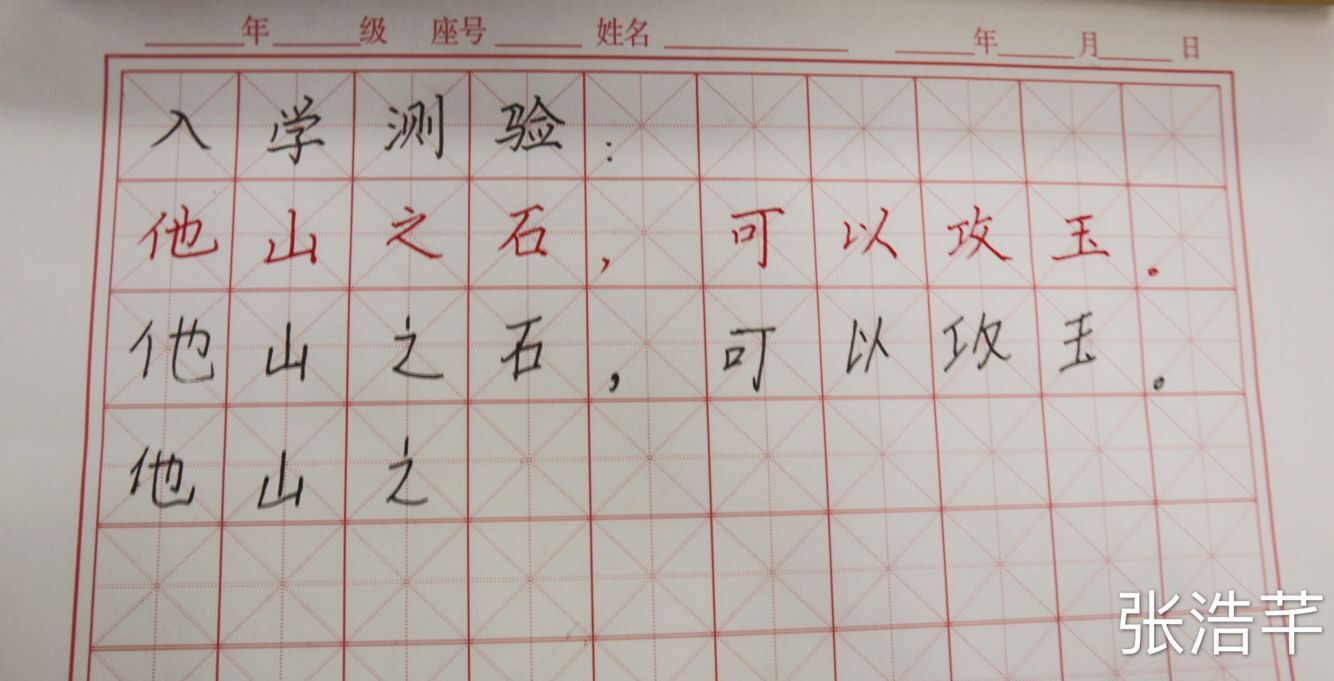 年 级 座号 姓名 年 月 日
入学测验：
他山之石，可以攻玉。
他山之石，可以攻玉。
他山之
张浩芊